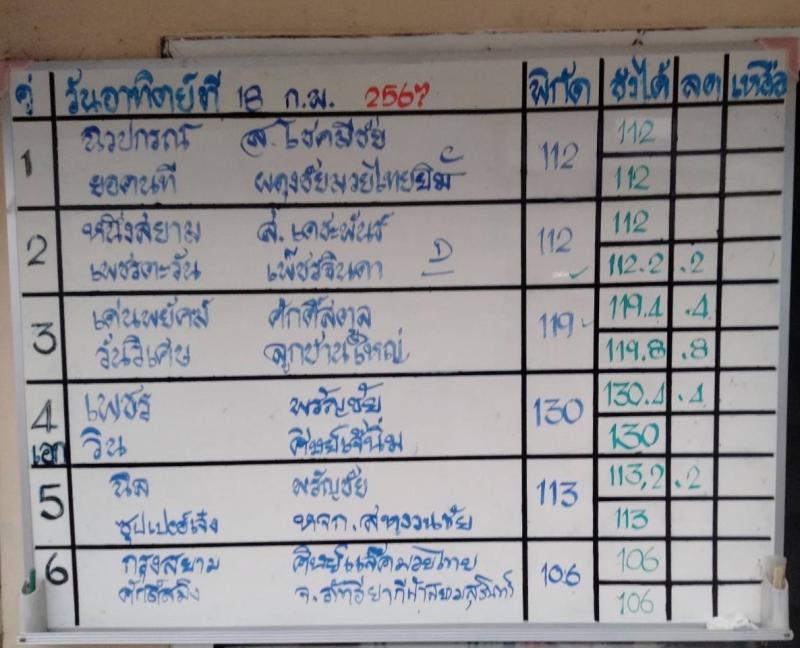 คู่ วันอาทิตย์ที่ 18 ก.พ. 2567 พิกัด ชั่งได้ ลด เหลือ
1 ฉวปกรณ์ ส.โชคมีชัย 112 112
ยอดนที ผดุงชัยมวยไทยยิม 112
2 หนึ่งสยาม ส.เดชะพันธ์ 112 112
เพชรตะวัน เพ็ชรจินดา D 112.2 .2
3 เด่นพยัคฆ์ ศักดิ์สตูล 119 119.4 .4
วันวิเศษ ลูกบ้านใหญ่ 119.8 .8
4 เพชร พรัญชัย 130 130.4 .4
เอก วิน ศิษย์เจ๊นิ่ม 130
5 นิล พรัญชัย 113 113.2 .2
ซุปเปอร์เจ๋ง หจก. สหวงนชัย 113
6 กรุงสยาม ศิษย์ มวยไทย 106 106
ศักดิ์สมิง 106